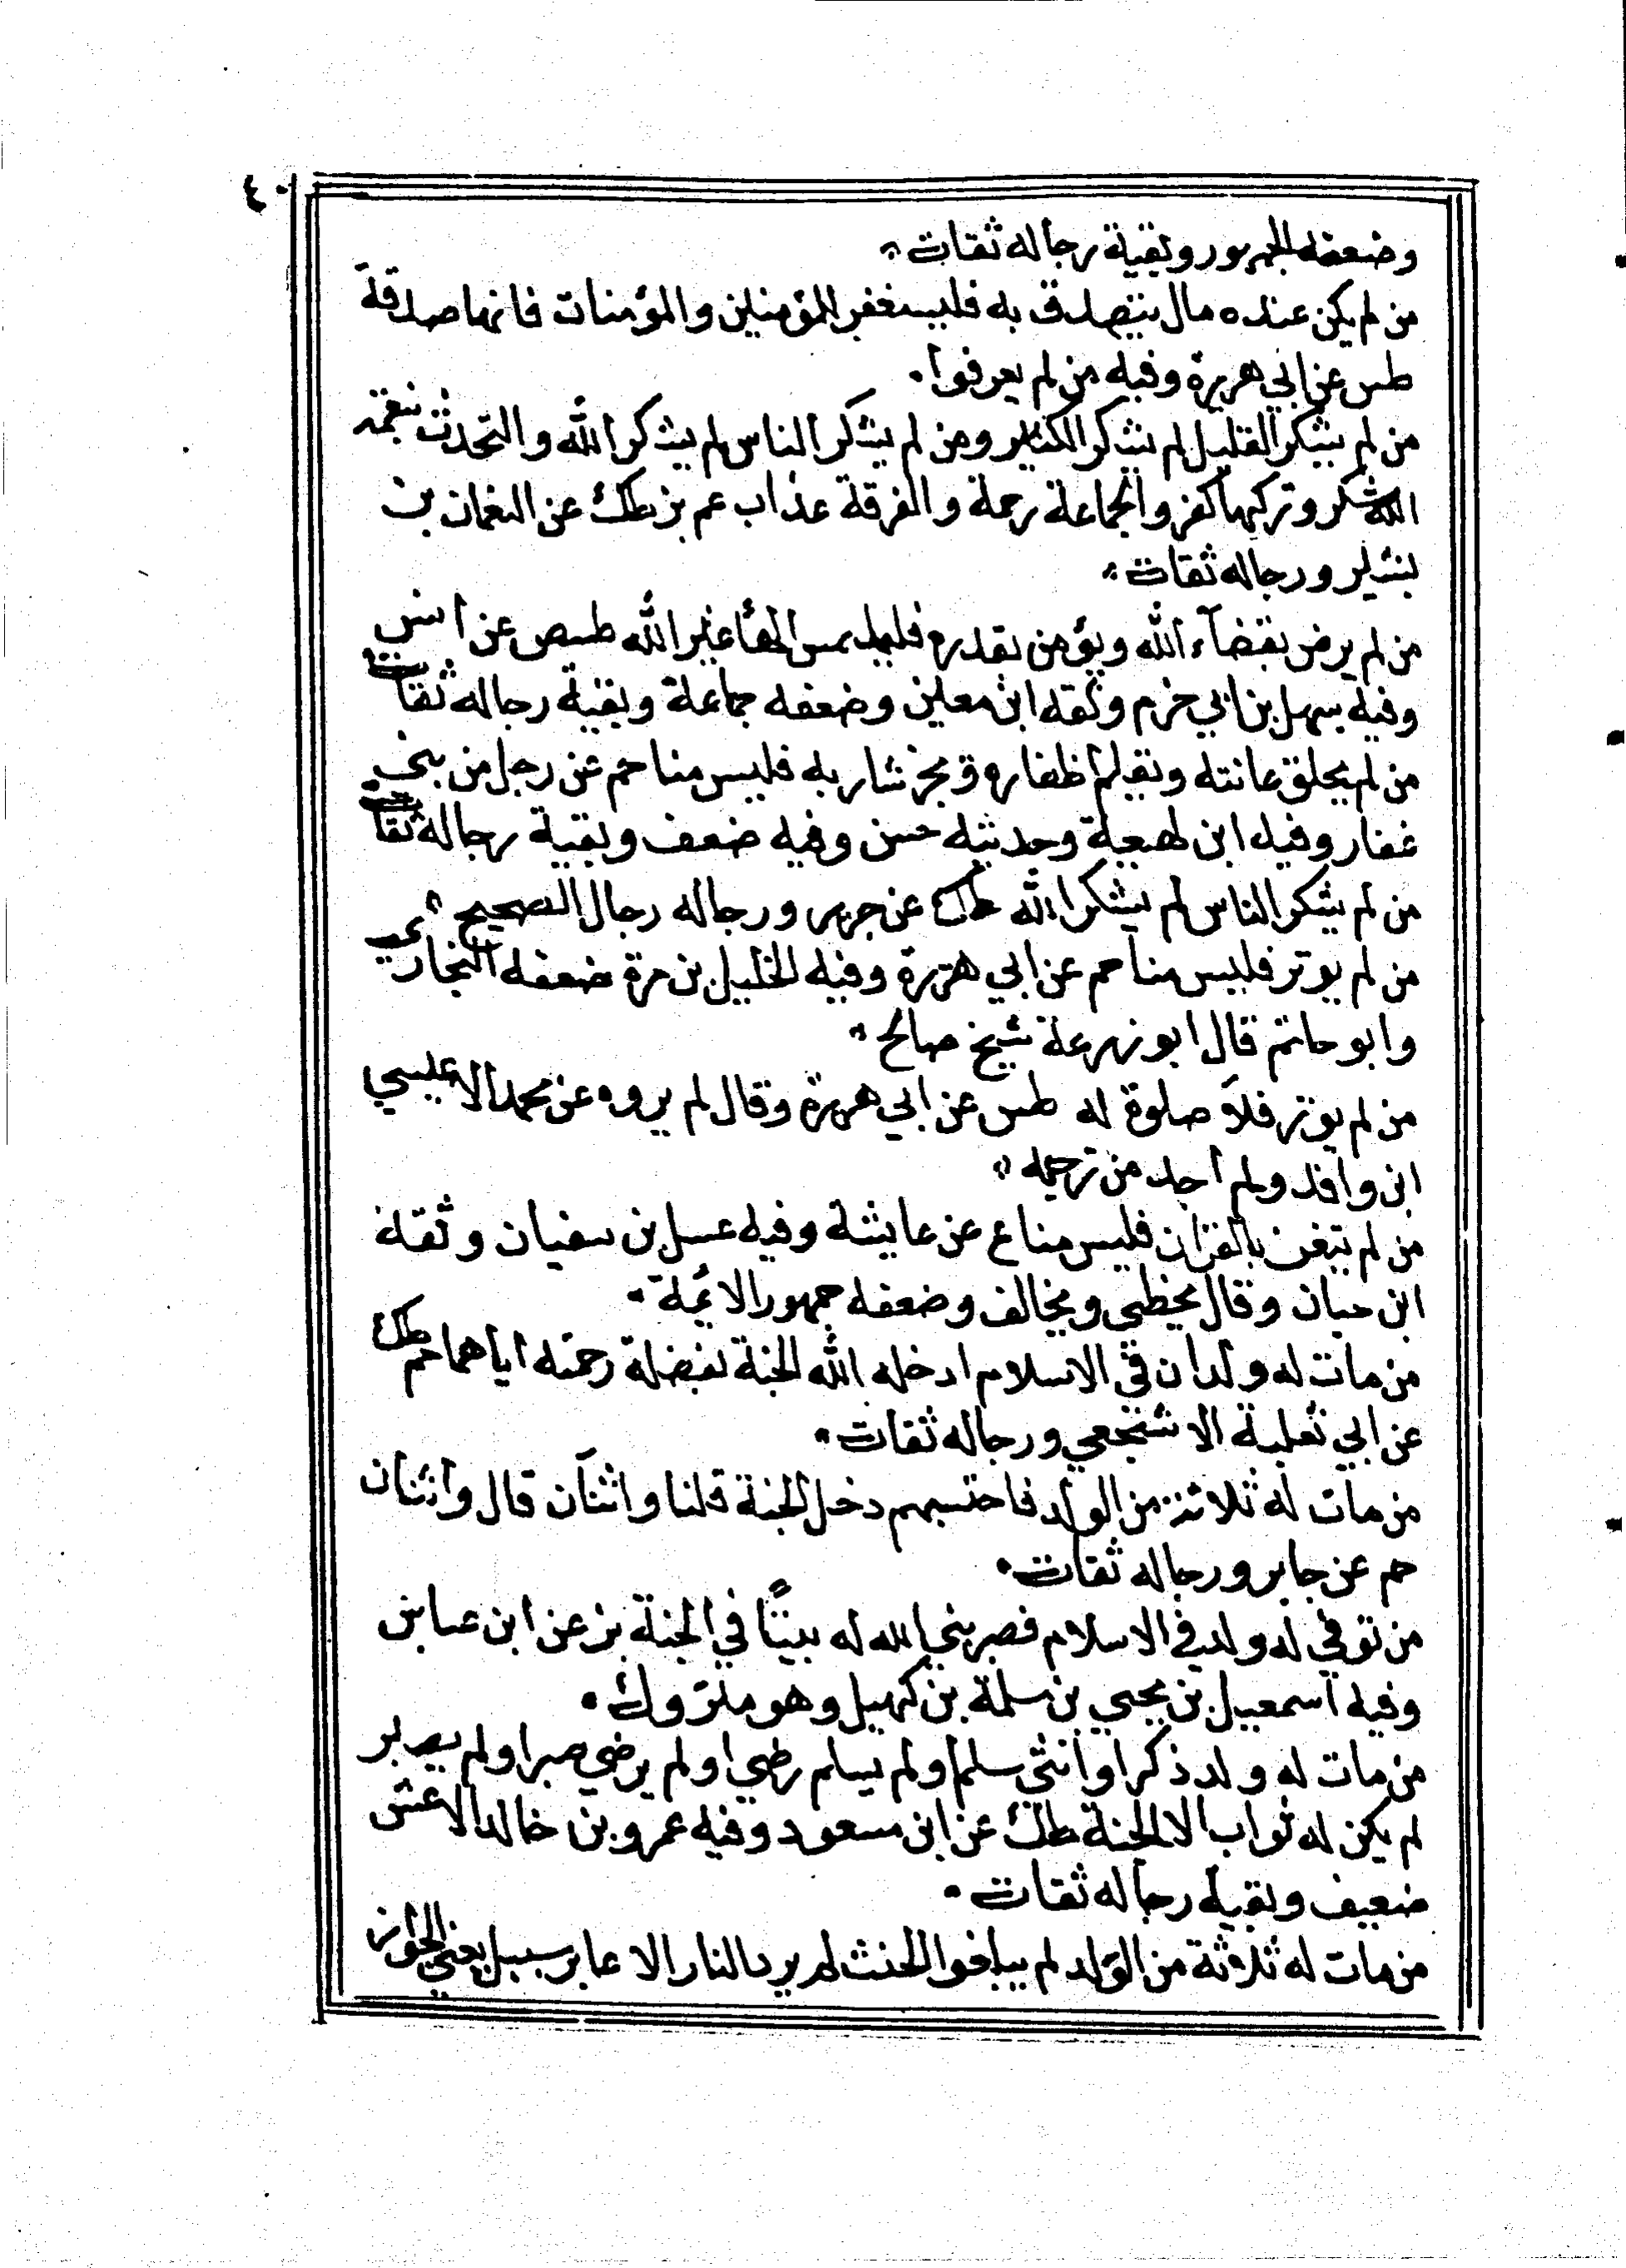 ٤٠
وضعفه الجمهور وبقية رجاله ثقات
من لم يكن عنده مال يتصدق به فليستغفر للمؤمنين والمؤمنات فانها صدقة
طس عن ابي هريرة وفيه من لم يعرفوا
من لم يشكر القليل لم يشكر الكثير ومن لم يشكر الناس لم يشكر الله والتحدث بنعمة
الله شكر وتركها كفر والجماعة رحمة والفرقة عذاب عم بز طك عن النعمان بن
بشير ورجاله ثقات
من لم يرض بقضآء الله ويؤمن بقدره فليلتمس الها غير الله طسص عن انس
وفيه سهل بن ابي حزم وثقه ابن معين وضعفه جماعة وبقية رجاله ثقات
من لم يحلق عانته ويقلم اظفاره ويجز شاربه فليس منا حم عن رجل من بني
غفار وفيه ابن لهيعة وحديثه حسن وفيه ضعف وبقية رجاله ثقات
من لم يشكر الناس لم يشكر الله طك عن جرير ورجاله رجال الصحيح
من لم يوتر فليس منا حم عن ابي هريرة وفيه الخليل بن مرة ضعفه البخاري
وابو حاتم قال ابو زرعة شيخ صالح
من لم يوتر فلا صلوة له طس عن ابي هريرة وقال لم يروه عن محمد الا عيسي
ابن واقد ولم اجد من ترجمه
من لم يتغن بالقرآن فليس منا ع عن عايشة وفيه عسل بن سفيان وثقه
ابن حبان وقال يخطي ويخالف وضعفه جمهور الائمة
من مات له ولدان في الاسلام ادخله الله الجنة بفضل رحمته اياهما حم طك
عن ابي ثعلبة الاشجعي ورجاله ثقات
من مات له ثلاثة من الولد فاحتسبهم دخل الجنة قلنا واثنان قال واثنان
حم عن جابر ورجاله ثقات
من توفي له ولد في الاسلام فصبر بني الله له بيتًا في الجنة بز عن ابن عباس
وفيه اسمعيل بن يحيي بن سلمة بن كهيل وهو متروك
من مات له ولد ذكر او انثى سلم او لم يسلم رضي او لم يرضي صبر او لم يصبر
لم يكن له ثواب الا الجنة طك عن ابن مسعود وفيه عمرو بن خالد الاعشى
ضعيف وبقية رجاله ثقات
من مات له ثلاثة من الولد لم يبلغوا الحنث لم يرد النار الا عابر سبيل يعني الجواز